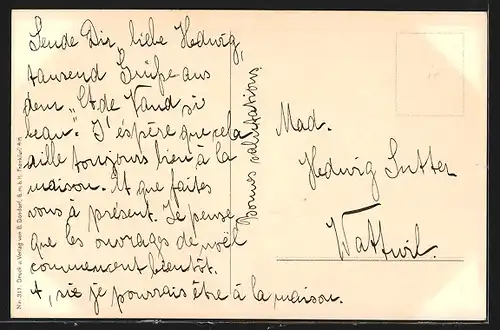 Sende Dir, liebe Hedwig,
tausend Grüße aus
dem "Ct de Vaud si
beau". J'éspère que cela
aille toujours bien à la
maison. Et que faites
vous à présent. Je pense
que les ouvrages de noël
commencent bientôt.
je pourrais être à la maison.
Bonnes salutations.
Mad.
Hedwig Sutter
Wattwil.
Nr. 317. Druck u. Verlag von B. Dondorf, G.m.b.H. Frankfurt a/M